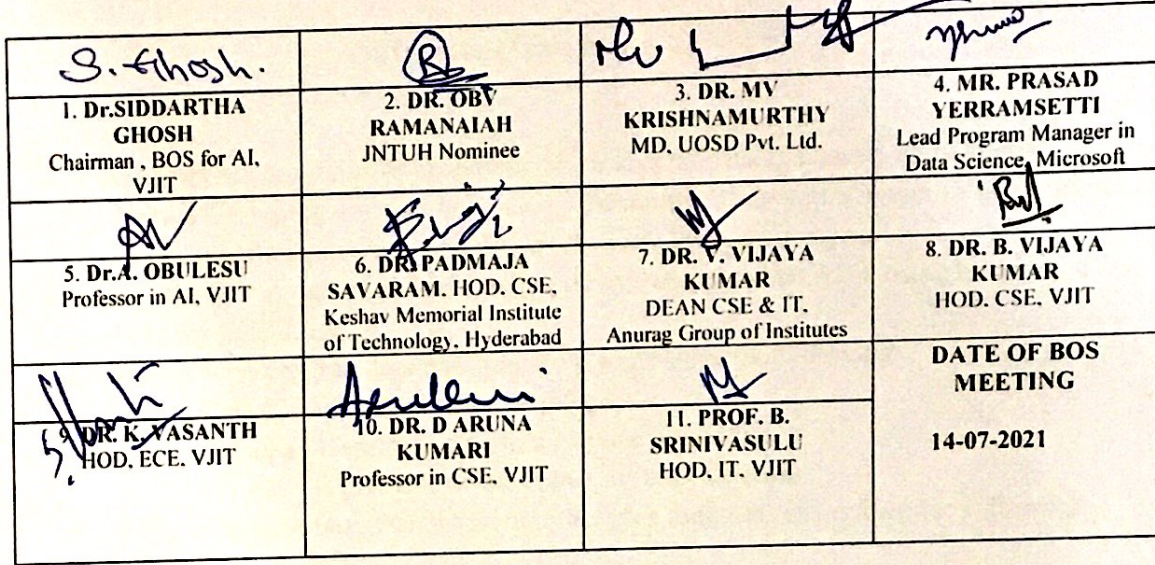 S. Ghosh.
1. Dr.SIDDARTHA
GHOSH
Chairman , BOS for AI,
VJIT
R
2. DR. OBV
RAMANAIAH
JNTUH Nominee
3. DR. MV
KRISHNAMURTHY
MD, UOSD Pvt. Ltd.
4. MR. PRASAD
YERRAMSETTI
Lead Program Manager in
Data Science, Microsoft
5. Dr.A. OBULESU
Professor in AI, VJIT
6. DR. PADMAJA
SAVARAM. HOD. CSE,
Keshav Memorial Institute
of Technology. Hyderabad
7. DR. V. VIJAYA
KUMAR
DEAN CSE & IT.
Anurag Group of Institutes
8. DR. B. VIJAYA
KUMAR
HOD. CSE. VJIT
9. DR. K. VASANTH
HOD. ECE. VJIT
10. DR. D ARUNA
KUMARI
Professor in CSE. VJIT
11. PROF. B.
SRINIVASULU
HOD. IT. VJIT
DATE OF BOS
MEETING
14-07-2021